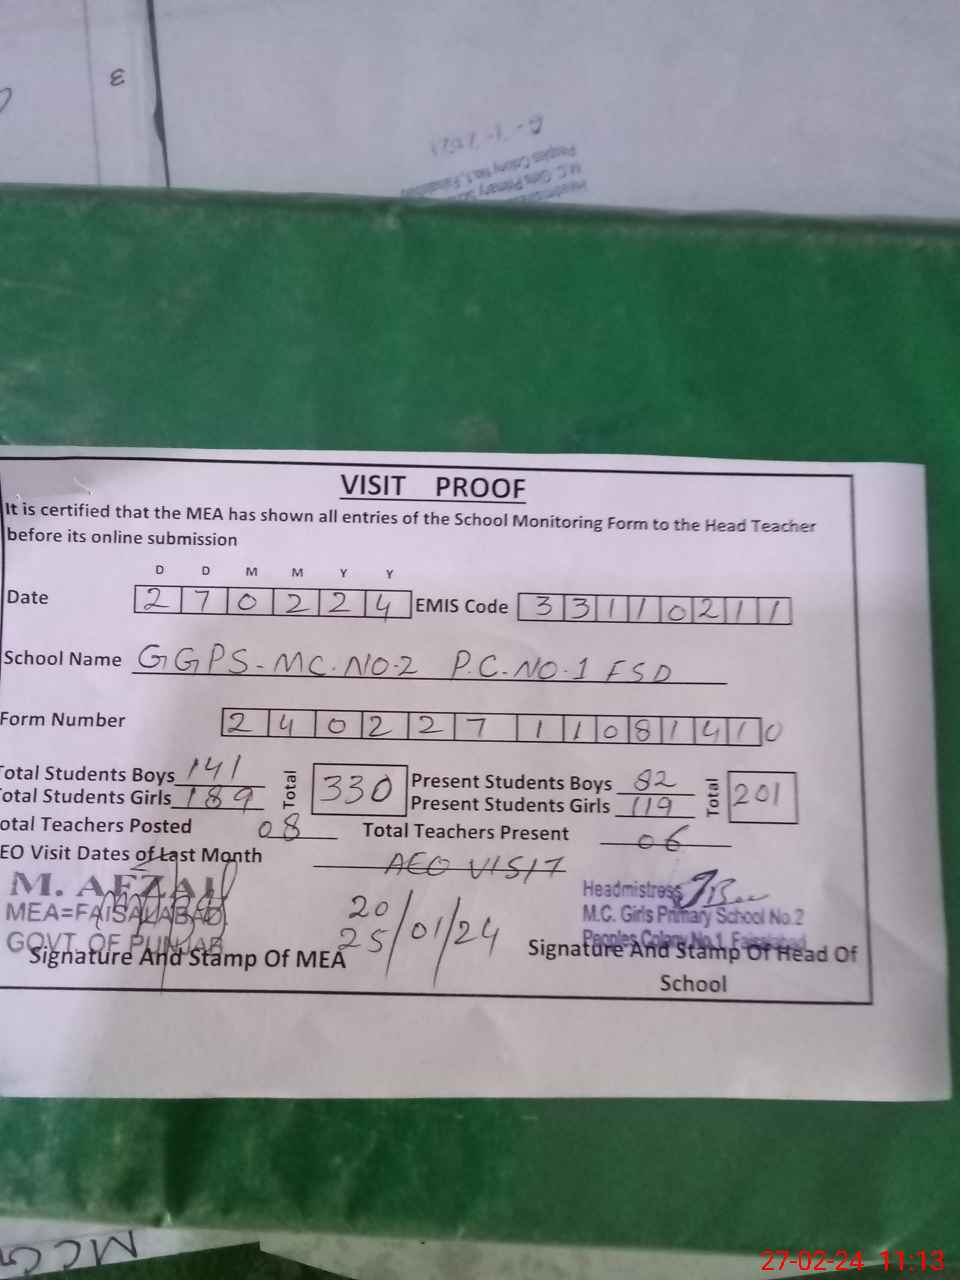 3
M.C. Girls Primary
Peoples Colony No.1,
VISIT PROOF
It is certified that the MEA has shown all entries of the School Monitoring Form to the Head Teacher
before its online submission
D D M M Y Y
Date 2 7 0 2 2 4 EMIS Code 3 3 1 1 0 2 1 1
School Name GGPS-MC.NO-2 P.C.NO-1 FSD
Form Number 2 4 0 2 2 7 1 1 0 8 1 4 1 0
Total Students Boys 141 Total 330 Present Students Boys 82 Total 201
Total Students Girls 189 Present Students Girls 119
otal Teachers Posted 08 Total Teachers Present 06
EO Visit Dates of Last Month AEO VISIT
M. AFZAL
MEA=FAISALABAD
GOVT. OF PUNJAB
20
25/01/24
Headmistress
M.C. Girls Primary School No.2
Peoples Colony No.1, Faisalabad
Signature And Stamp Of MEA
Signature And Stamp Of Head Of
School
27-02-24 11:13